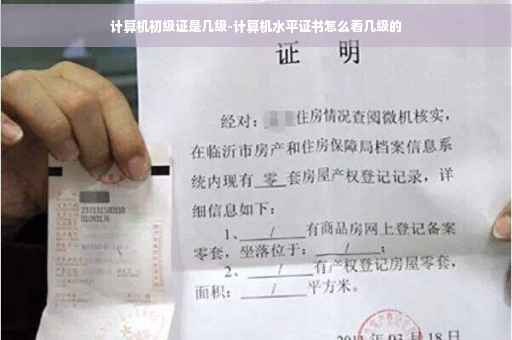 计算机初级证是几级-计算机水平证书怎么看几级的
证 明
经对：住房情况查阅微机核实，
在临沂市房产和住房保障局档案信息系
统内现有 零 套房屋产权登记记录，详
细信息如下：
1、 / 有商品房网上登记备案
零套，坐落位于： / ；
2、 / 有产权登记房屋零套，
面积： / 平方米。
03 月 18 日